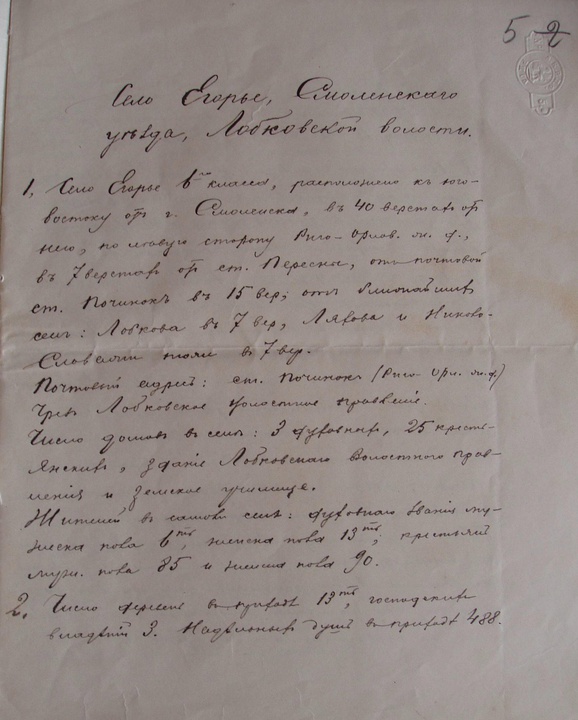 5 2
Село Егорье, Смоленскаго
уѣзда, Лобковской волости.
1, Село Егорье 6го класса, расположено къ юго-
востоку отъ г. Смоленска, въ 40 верстахъ отъ
него, по лѣвую сторону Риго-Орлов. ж. д.,
въ 7 верстахъ от ст. Пересна, отъ почтовой
ст. Починокъ въ 15 вер; отъ ближайшихъ
селъ: Лобкова въ 7 вер, Ляхова и Николо-
въ 7 вер.
Почтовый адресъ: ст. Починокъ (Риго-Орл. ж. д.)
чрезъ Лобковское Волостное правленіе.
Число домовъ въ селѣ: 3 духовныхъ, 25 кресть-
янскихъ, зданіе Лобковскаго Волостного прав-
ленія и Земское училище.
Жителей въ самомъ селѣ: духовнаго званія му-
жеска пола 6ть, женска пола 13ть, крестьянъ
муж. пола 85 и женска пола 90.
2, Число деревень въ приходѣ 13ть, господскихъ
владѣній 3. душъ въ приходѣ 488.